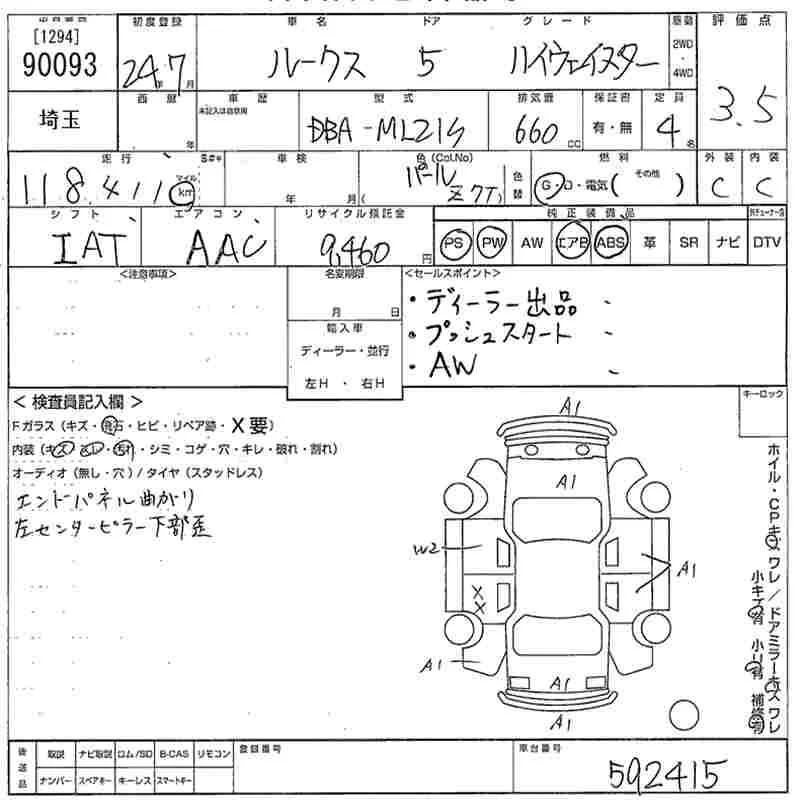 [1294]
90093
初度登録 車名 ドア グレード 駆動 評価点
24年7月 ルークス 5 ハイウェイスター 2WD・4WD 3.5
埼玉
西暦 年 車歴 未記入は自家用 型式 DBA-ML21S 排気量 660cc 保証書 有・無 定員 4名
走行 118411 マイル km S#キ 車検 年 月 色(Col.No) パール Z7T 色替 燃料 G・D・電気( その他 ) 外装 C 内装 C
シフト IAT エアコン AAC リサイクル預託金 9,460円 純正装備品
PS PW AW エアB ABS 革 SR ナビ DTV
<注意事項>
名変期限
月 日
輸入車
ディーラー・並行
左H・右H
<セールスポイント>
・ディーラー出品
・プッシュスタート
・AW
<検査員記入欄>
Fガラス(キズ・飛石・ヒビ・リペア跡・X要)
内装(キズ・スレ・汚れ・シミ・コゲ・穴・キレ・破れ・割れ)
オーディオ(無し・穴)/タイヤ(スタッドレス)
エンドパネル曲がり
左センターピラー下部歪
キーロック
A1
A1
W2
XX
A1
A1
A1
A1
ホイル・CPキズ ワレ/ドアミラーキズ ワレ
小キズ有 小凹有 補修有
後送品 取説 ナビ取説 ロム/SD B-CAS リモコン
ナンバー スペアキー キーレス スマートキー
登録番号
車台番号
592415